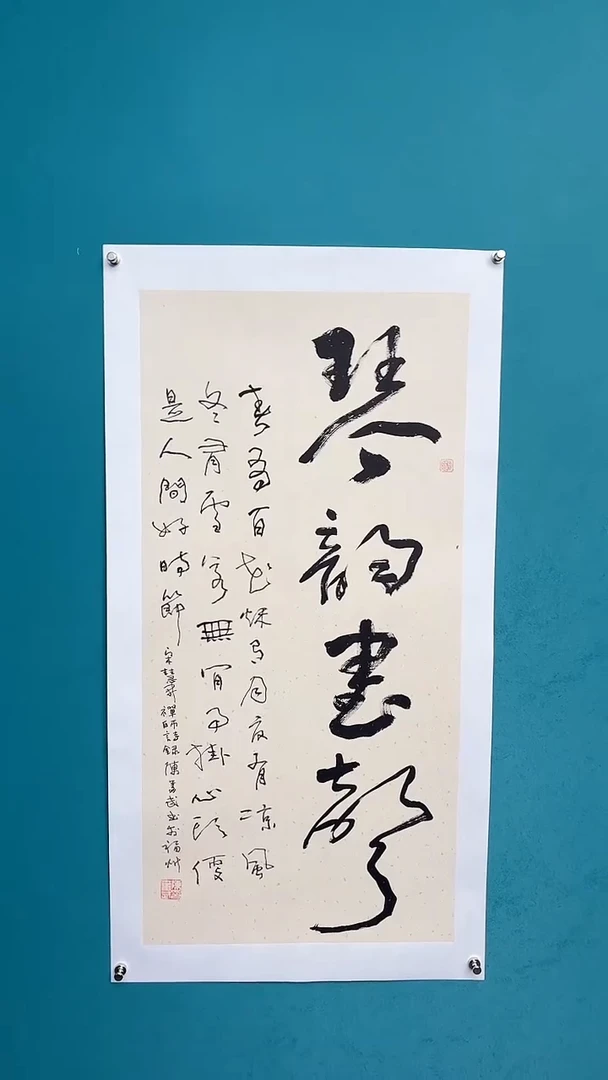 琴韵書聲
春有百花秋有月夏有凉風
冬有雪若無閒事掛心頭便
是人間好時節
宋慧開禪師詩 陳 武 福州